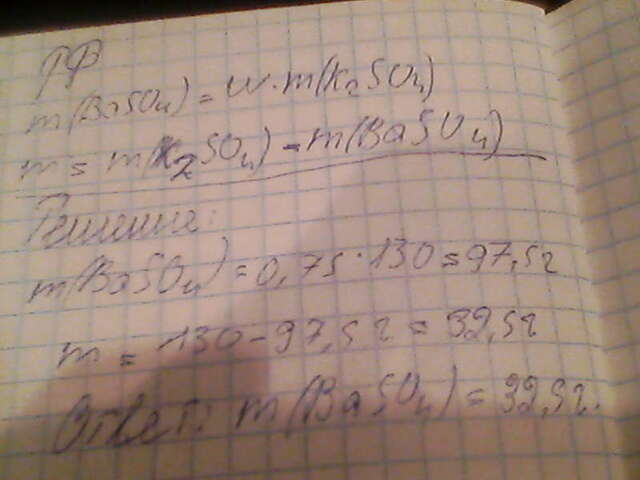 РФ
m(BaSO₄) = w·m(K₂SO₄)
m = m(K₂SO₄) - m(BaSO₄)
Решение:
m(BaSO₄) = 0,75·130 = 97,5г
m = 130-97,5г = 32,5г
Ответ: m(BaSO₄) = 32,5г.